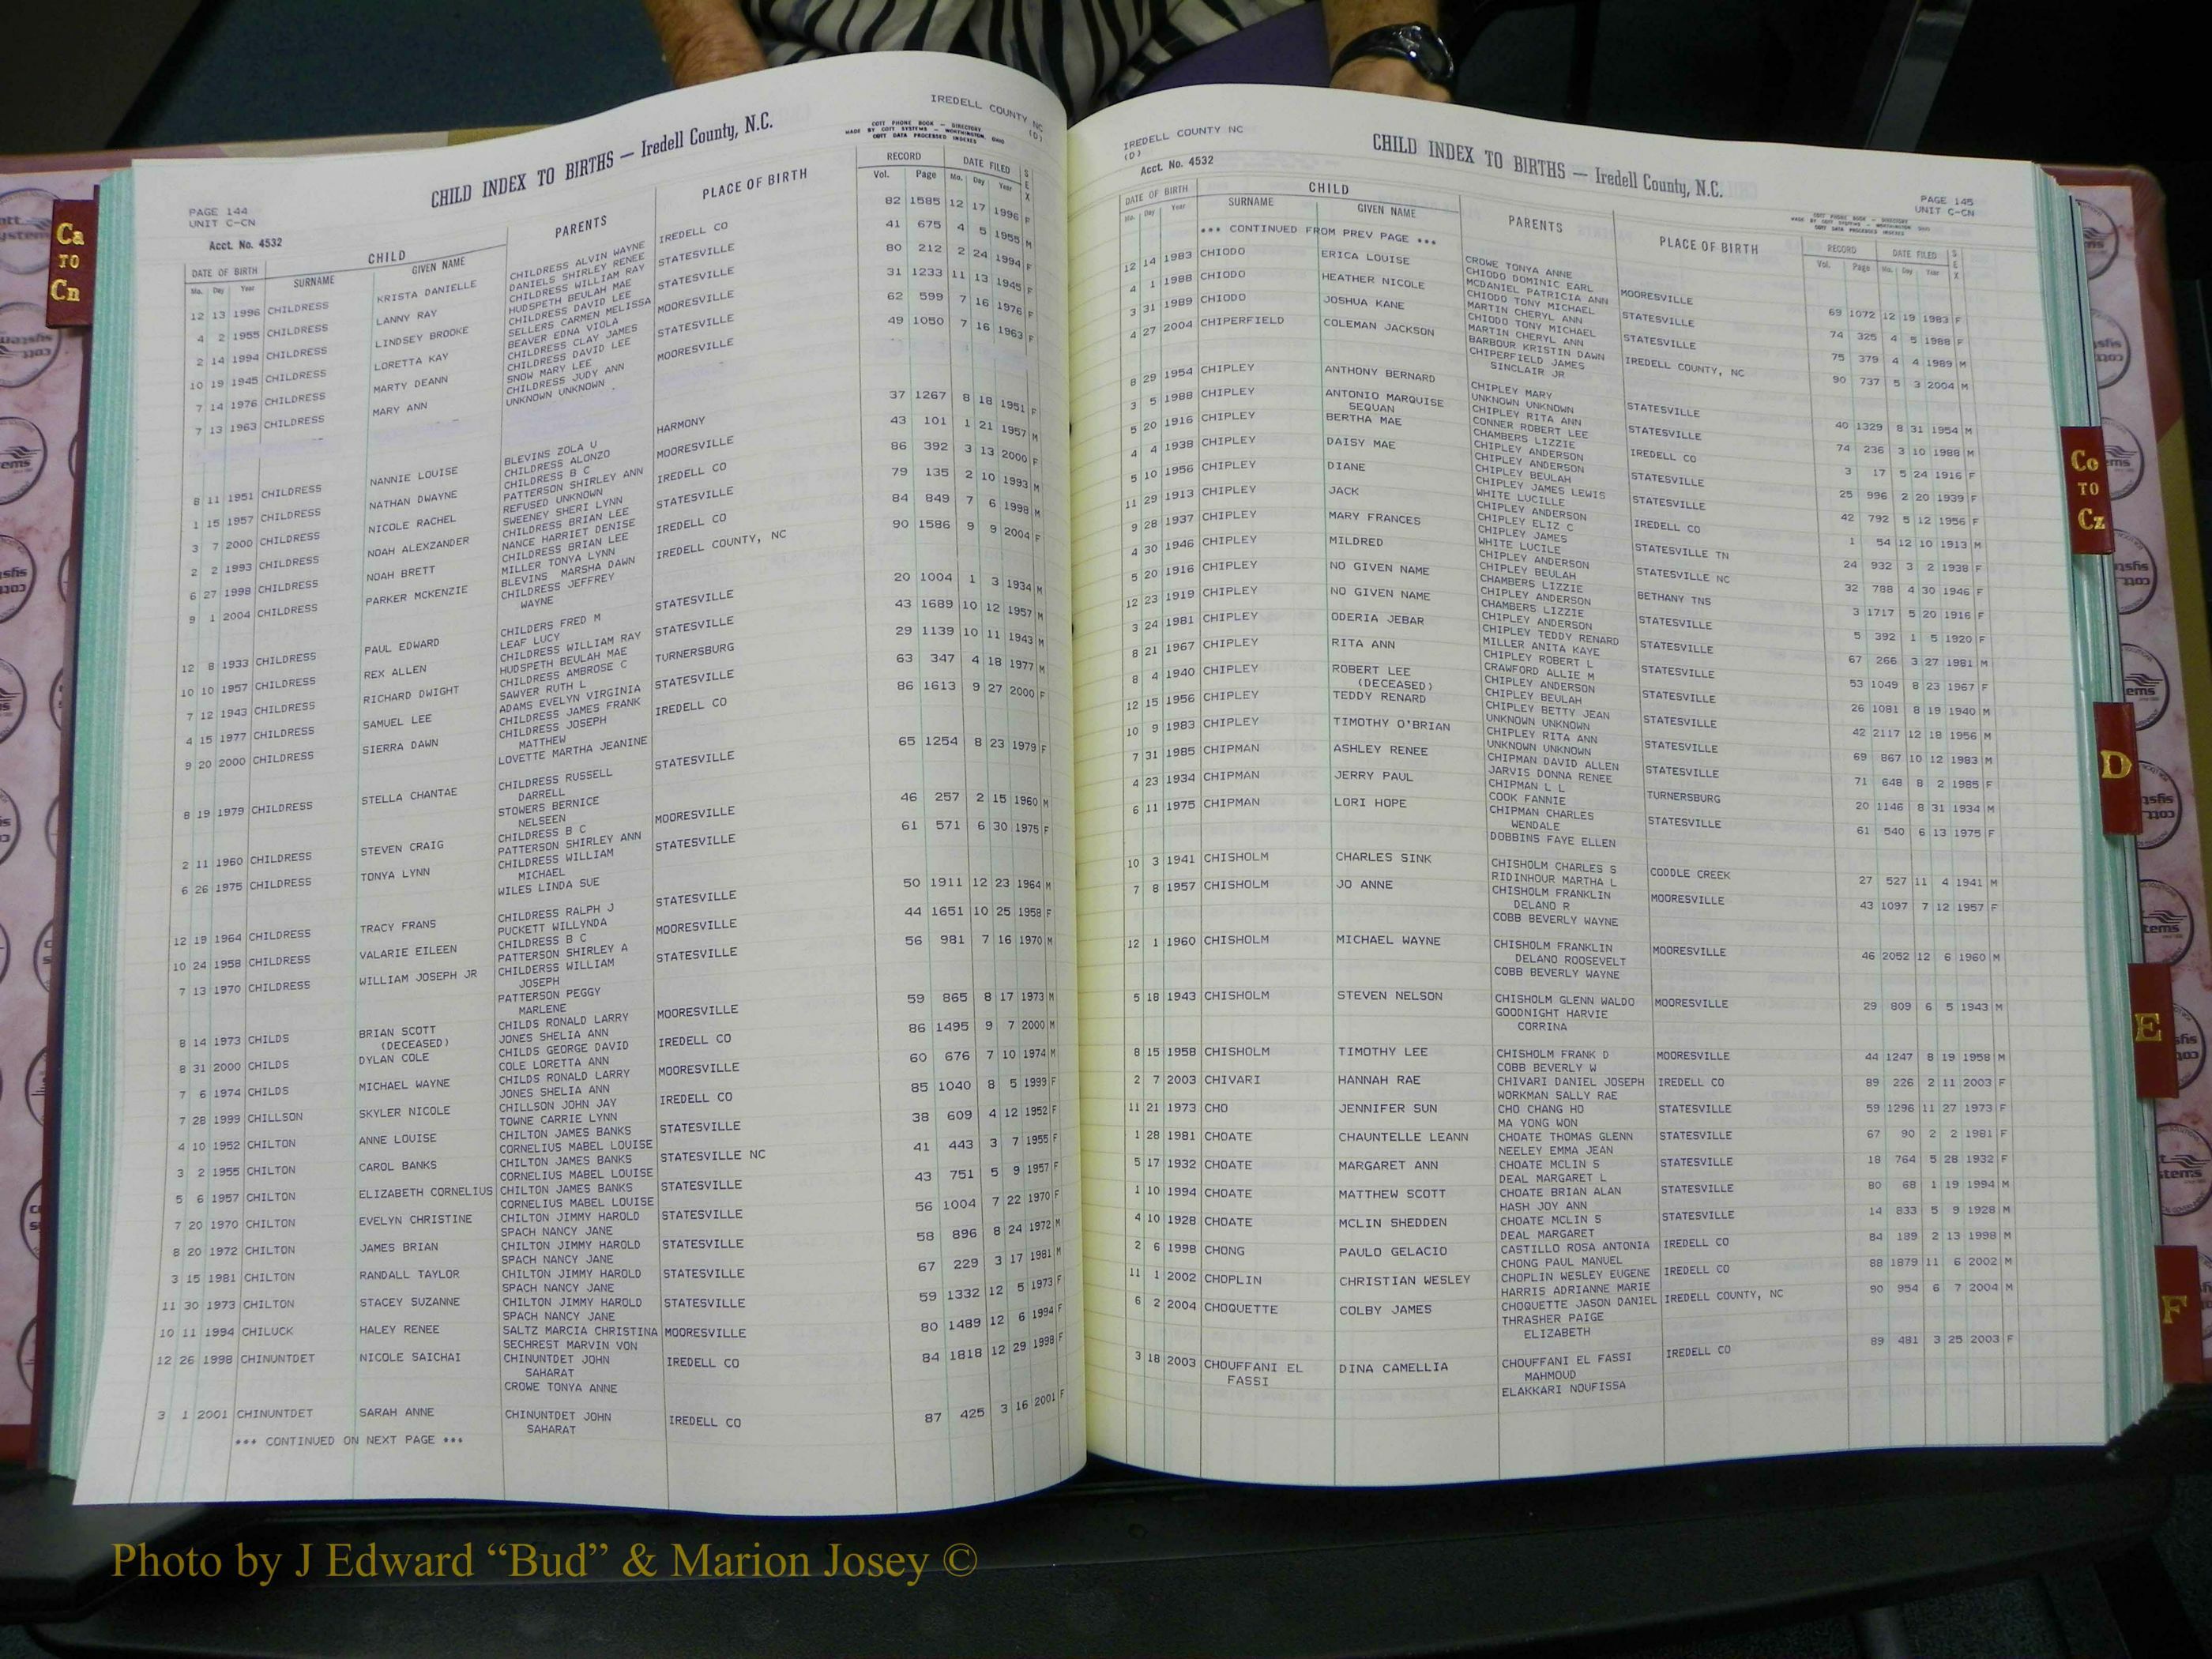 IREDELL COUNTY NC
(D)
CHILD INDEX TO BIRTHS — Iredell County, N.C.
COTT PHONE BOOK — DIRECTORY
MADE BY COTT SYSTEMS — WORTHINGTON, OHIO
COTT DATA PROCESSED INDEXES
PAGE 144
UNIT C-CN
Acct. No. 4532
DATE OF BIRTH CHILD PARENTS PLACE OF BIRTH RECORD DATE FILED SEX
Mo. Day Year SURNAME GIVEN NAME Vol. Page Mo. Day Year
12 13 1996 CHILDRESS KRISTA DANIELLE CHILDRESS ALVIN WAYNE IREDELL CO 82 1585 12 17 1996 F
DANIELS SHIRLEY RENEE
4 2 1955 CHILDRESS LANNY RAY CHILDRESS WILLIAM RAY STATESVILLE 41 675 4 5 1955 M
HUDSPETH BEULAH MAE
2 14 1994 CHILDRESS LINDSEY BROOKE CHILDRESS DAVID LEE STATESVILLE 80 212 2 24 1994 F
SELLERS CARMEN MELISSA
10 19 1945 CHILDRESS LORETTA KAY BEAVER EDNA VIOLA MOORESVILLE 31 1233 11 13 1945 F
CHILDRESS CLAY JAMES
7 14 1976 CHILDRESS MARTY DEANN CHILDRESS DAVID LEE STATESVILLE 62 599 7 16 1976 F
SNOW MARY LEE
7 13 1963 CHILDRESS MARY ANN CHILDRESS JUDY ANN MOORESVILLE 49 1050 7 16 1963 F
UNKNOWN UNKNOWN
8 11 1951 CHILDRESS NANNIE LOUISE BLEVINS ZOLA U HARMONY 37 1267 8 18 1951 F
CHILDRESS ALONZO
1 15 1957 CHILDRESS NATHAN DWAYNE CHILDRESS B C MOORESVILLE 43 101 1 21 1957 M
PATTERSON SHIRLEY ANN
3 7 2000 CHILDRESS NICOLE RACHEL REFUSED UNKNOWN IREDELL CO 86 392 3 13 2000 F
SWEENEY SHERI LYNN
2 2 1993 CHILDRESS NOAH ALEXZANDER CHILDRESS BRIAN LEE STATESVILLE 79 135 2 10 1993 M
NANCE HARRIET DENISE
6 27 1998 CHILDRESS NOAH BRETT CHILDRESS BRIAN LEE IREDELL CO 84 849 7 6 1998 M
MILLER TONYA LYNN
9 1 2004 CHILDRESS PARKER MCKENZIE BLEVINS MARSHA DAWN IREDELL COUNTY, NC 90 1586 9 9 2004 F
CHILDRESS JEFFREY
WAYNE
12 8 1933 CHILDRESS PAUL EDWARD CHILDERS FRED M STATESVILLE 20 1004 1 3 1934 M
LEAF LUCY
10 10 1957 CHILDRESS REX ALLEN CHILDRESS WILLIAM RAY STATESVILLE 43 1689 10 12 1957 M
HUDSPETH BEULAH MAE
7 12 1943 CHILDRESS RICHARD DWIGHT CHILDRESS AMBROSE C TURNERSBURG 29 1139 10 11 1943 M
SAWYER RUTH L
4 15 1977 CHILDRESS SAMUEL LEE ADAMS EVELYN VIRGINIA STATESVILLE 63 347 4 18 1977 M
CHILDRESS JAMES FRANK
9 20 2000 CHILDRESS SIERRA DAWN CHILDRESS JOSEPH IREDELL CO 86 1613 9 27 2000 F
MATTHEW
LOVETTE MARTHA JEANINE
8 19 1979 CHILDRESS STELLA CHANTAE CHILDRESS RUSSELL STATESVILLE 65 1254 8 23 1979 F
DARRELL
STOWERS BERNICE
NELSEEN
2 11 1960 CHILDRESS STEVEN CRAIG CHILDRESS B C MOORESVILLE 46 257 2 15 1960 M
PATTERSON SHIRLEY ANN
6 26 1975 CHILDRESS TONYA LYNN CHILDRESS WILLIAM STATESVILLE 61 571 6 30 1975 F
MICHAEL
WILES LINDA SUE
12 19 1964 CHILDRESS TRACY FRANS CHILDRESS RALPH J STATESVILLE 50 1911 12 23 1964 M
PUCKETT WILLYNDA
10 24 1958 CHILDRESS VALARIE EILEEN CHILDRESS B C MOORESVILLE 44 1651 10 25 1958 F
PATTERSON SHIRLEY A
7 13 1970 CHILDRESS WILLIAM JOSEPH JR CHILDERSS WILLIAM STATESVILLE 56 981 7 16 1970 M
JOSEPH
PATTERSON PEGGY
MARLENE
8 14 1973 CHILDS BRIAN SCOTT CHILDS RONALD LARRY MOORESVILLE 59 865 8 17 1973 M
(DECEASED) JONES SHELIA ANN
8 31 2000 CHILDS DYLAN COLE CHILDS GEORGE DAVID IREDELL CO 86 1495 9 7 2000 M
COLE LORETTA ANN
7 6 1974 CHILDS MICHAEL WAYNE CHILDS RONALD LARRY MOORESVILLE 60 676 7 10 1974 M
JONES SHELIA ANN
7 28 1999 CHILLSON SKYLER NICOLE CHILLSON JOHN JAY IREDELL CO 85 1040 8 5 1999 F
TOWNE CARRIE LYNN
4 10 1952 CHILTON ANNE LOUISE CHILTON JAMES BANKS STATESVILLE 38 609 4 12 1952 F
CORNELIUS MABEL LOUISE
3 2 1955 CHILTON CAROL BANKS CHILTON JAMES BANKS STATESVILLE NC 41 443 3 7 1955 F
CORNELIUS MABEL LOUISE
5 6 1957 CHILTON ELIZABETH CORNELIUS CHILTON JAMES BANKS STATESVILLE 43 751 5 9 1957 F
CORNELIUS MABEL LOUISE
7 20 1970 CHILTON EVELYN CHRISTINE CHILTON JIMMY HAROLD STATESVILLE 56 1004 7 22 1970 F
SPACH NANCY JANE
8 20 1972 CHILTON JAMES BRIAN CHILTON JIMMY HAROLD STATESVILLE 58 896 8 24 1972 M
SPACH NANCY JANE
3 15 1981 CHILTON RANDALL TAYLOR CHILTON JIMMY HAROLD STATESVILLE 67 229 3 17 1981 M
SPACH NANCY JANE
11 30 1973 CHILTON STACEY SUZANNE CHILTON JIMMY HAROLD STATESVILLE 59 1332 12 5 1973 F
SPACH NANCY JANE
10 11 1994 CHILUCK HALEY RENEE SALTZ MARCIA CHRISTINA MOORESVILLE 80 1489 12 6 1994 F
SECHREST MARVIN VON
12 26 1998 CHINUNTDET NICOLE SAICHAI CHINUNTDET JOHN IREDELL CO 84 1818 12 29 1998 F
SAHARAT
CROWE TONYA ANNE
3 1 2001 CHINUNTDET SARAH ANNE CHINUNTDET JOHN IREDELL CO 87 425 3 16 2001 F
SAHARAT
*** CONTINUED ON NEXT PAGE ***
IREDELL COUNTY NC
(D)
Acct. No. 4532
CHILD INDEX TO BIRTHS — Iredell County, N.C.
PAGE 145
UNIT C-CN
COTT PHONE BOOK — DIRECTORY
MADE BY COTT SYSTEMS — WORTHINGTON, OHIO
COTT DATA PROCESSED INDEXES
DATE OF BIRTH CHILD PARENTS PLACE OF BIRTH RECORD DATE FILED SEX
Mo. Day Year SURNAME GIVEN NAME Vol. Page Mo. Day Year
*** CONTINUED FROM PREV PAGE ***
CROWE TONYA ANNE
12 14 1983 CHIODO ERICA LOUISE CHIODO DOMINIC EARL MOORESVILLE 69 1072 12 19 1983 F
MCDANIEL PATRICIA ANN
4 1 1988 CHIODO HEATHER NICOLE CHIODO TONY MICHAEL STATESVILLE 74 325 4 5 1988 F
MARTIN CHERYL ANN
3 31 1989 CHIODO JOSHUA KANE CHIODO TONY MICHAEL STATESVILLE 75 379 4 4 1989 M
MARTIN CHERYL ANN
4 27 2004 CHIPERFIELD COLEMAN JACKSON BARBOUR KRISTIN DAWN IREDELL COUNTY, NC 90 737 5 3 2004 M
CHIPERFIELD JAMES
SINCLAIR JR
8 29 1954 CHIPLEY ANTHONY BERNARD CHIPLEY MARY STATESVILLE 40 1329 8 31 1954 M
UNKNOWN UNKNOWN
3 5 1988 CHIPLEY ANTONIO MARQUISE CHIPLEY RITA ANN STATESVILLE 74 236 3 10 1988 M
SEQUAN CONNER ROBERT LEE
5 20 1916 CHIPLEY BERTHA MAE CHAMBERS LIZZIE IREDELL CO 3 17 5 24 1916 F
CHIPLEY ANDERSON
4 4 1938 CHIPLEY DAISY MAE CHIPLEY ANDERSON STATESVILLE 25 996 2 20 1939 F
CHIPLEY BEULAH
5 10 1956 CHIPLEY DIANE CHIPLEY JAMES LEWIS STATESVILLE 42 792 5 12 1956 F
WHITE LUCILLE
11 29 1913 CHIPLEY JACK CHIPLEY ANDERSON IREDELL CO 1 54 12 10 1913 M
CHIPLEY ELIZ C
9 28 1937 CHIPLEY MARY FRANCES CHIPLEY JAMES STATESVILLE TN 24 932 3 2 1938 F
WHITE LUCILE
4 30 1946 CHIPLEY MILDRED CHIPLEY ANDERSON STATESVILLE NC 32 788 4 30 1946 F
CHIPLEY BEULAH
5 20 1916 CHIPLEY NO GIVEN NAME CHAMBERS LIZZIE BETHANY TNS 3 1717 5 20 1916 F
CHIPLEY ANDERSON
12 23 1919 CHIPLEY NO GIVEN NAME CHAMBERS LIZZIE STATESVILLE 5 392 1 5 1920 F
CHIPLEY ANDERSON
3 24 1981 CHIPLEY ODERIA JEBAR CHIPLEY TEDDY RENARD STATESVILLE 67 266 3 27 1981 M
MILLER ANITA KAYE
8 21 1967 CHIPLEY RITA ANN CHIPLEY ROBERT L STATESVILLE 53 1049 8 23 1967 F
CRAWFORD ALLIE M
8 4 1940 CHIPLEY ROBERT LEE CHIPLEY ANDERSON STATESVILLE 26 1081 8 19 1940 M
(DECEASED) CHIPLEY BEULAH
12 15 1956 CHIPLEY TEDDY RENARD CHIPLEY BETTY JEAN STATESVILLE 42 2117 12 18 1956 M
UNKNOWN UNKNOWN
10 9 1983 CHIPLEY TIMOTHY O'BRIAN CHIPLEY RITA ANN STATESVILLE 69 867 10 12 1983 M
UNKNOWN UNKNOWN
7 31 1985 CHIPMAN ASHLEY RENEE CHIPMAN DAVID ALLEN STATESVILLE 71 648 8 2 1985 F
JARVIS DONNA RENEE
4 23 1934 CHIPMAN JERRY PAUL CHIPMAN L L TURNERSBURG 20 1146 8 31 1934 M
COOK FANNIE
6 11 1975 CHIPMAN LORI HOPE CHIPMAN CHARLES STATESVILLE 61 540 6 13 1975 F
WENDALE
DOBBINS FAYE ELLEN
10 3 1941 CHISHOLM CHARLES SINK CHISHOLM CHARLES S CODDLE CREEK 27 527 11 4 1941 M
RIDINHOUR MARTHA L
7 8 1957 CHISHOLM JO ANNE CHISHOLM FRANKLIN MOORESVILLE 43 1097 7 12 1957 F
DELANO R
COBB BEVERLY WAYNE
12 1 1960 CHISHOLM MICHAEL WAYNE CHISHOLM FRANKLIN MOORESVILLE 46 2052 12 6 1960 M
DELANO ROOSEVELT
COBB BEVERLY WAYNE
5 18 1943 CHISHOLM STEVEN NELSON CHISHOLM GLENN WALDO MOORESVILLE 29 809 6 5 1943 M
GOODNIGHT HARVIE
CORRINA
8 15 1958 CHISHOLM TIMOTHY LEE CHISHOLM FRANK D MOORESVILLE 44 1247 8 19 1958 M
COBB BEVERLY W
2 7 2003 CHIVARI HANNAH RAE CHIVARI DANIEL JOSEPH IREDELL CO 89 226 2 11 2003 F
WORKMAN SALLY RAE
11 21 1973 CHO JENNIFER SUN CHO CHANG HO STATESVILLE 59 1296 11 27 1973 F
MA YONG WON
1 28 1981 CHOATE CHAUNTELLE LEANN CHOATE THOMAS GLENN STATESVILLE 67 90 2 2 1981 F
NEELEY EMMA JEAN
5 17 1932 CHOATE MARGARET ANN CHOATE MCLIN S STATESVILLE 18 764 5 28 1932 F
DEAL MARGARET L
1 10 1994 CHOATE MATTHEW SCOTT CHOATE BRIAN ALAN STATESVILLE 80 68 1 19 1994 M
HASH JOY ANN
4 10 1928 CHOATE MCLIN SHEDDEN CHOATE MCLIN S STATESVILLE 14 833 5 9 1928 M
DEAL MARGARET
2 6 1998 CHONG PAULO GELACIO CASTILLO ROSA ANTONIA IREDELL CO 84 189 2 13 1998 M
CHONG PAUL MANUEL
11 1 2002 CHOPLIN CHRISTIAN WESLEY CHOPLIN WESLEY EUGENE IREDELL CO 88 1879 11 6 2002 M
HARRIS ADRIANNE MARIE
6 2 2004 CHOQUETTE COLBY JAMES CHOQUETTE JASON DANIEL IREDELL COUNTY, NC 90 954 6 7 2004 M
THRASHER PAIGE
ELIZABETH
3 18 2003 CHOUFFANI EL DINA CAMELLIA CHOUFFANI EL FASSI IREDELL CO 89 481 3 25 2003 F
FASSI MAHMOUD
ELAKKARI NOUFISSA
Ca
TO
Cn
Co
TO
Cz
D
E
F
Photo by J Edward “Bud” & Marion Josey ©